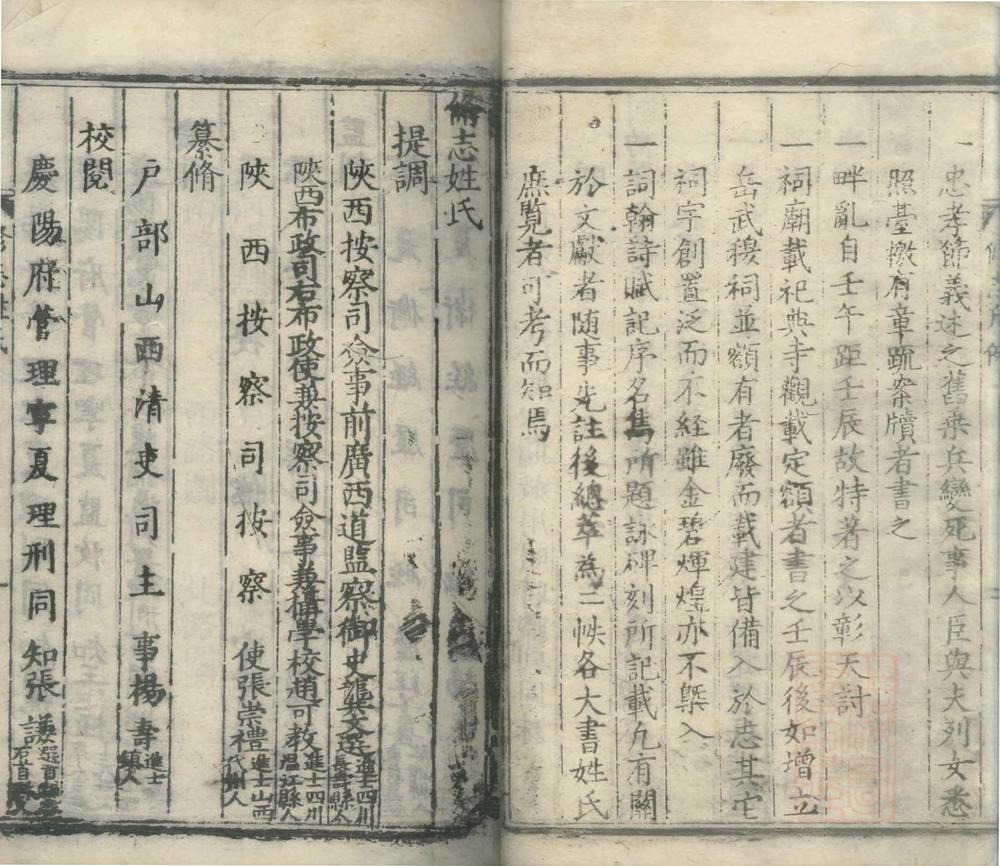 一忠孝節義述之舊乘兵變死事人臣與夫列女悉
照臺檄有章疏案牘者書之
一畔亂自壬午距壬辰故特著之以彰天討
一祠廟載祀典寺觀載定額者書之壬辰後如增立
岳武穆祠並額有者廢而載建皆備入於志其它
祠宇創置泛而不経雖金碧煇煌亦不槩入
一詞翰詩賦記序名雋所題詠碑刻所記載凢有關
於文獻者随事先註後總萃為二帙各大書姓氏
庶覧者可考而知焉
脩志姓氏
提調
陝西按察司僉事前廣西道監察御史龔文選進士四川長壽縣人
陝西布政司右布政使兼按察司僉事兼攝學校趙可教進士四川温江縣人
陝西按察司按察使張崇禮進士山西代州人
纂脩
户部山西清吏司主事楊壽進士鎮人
校閱
慶陽府管理寧夏理刑同知張謙選貢